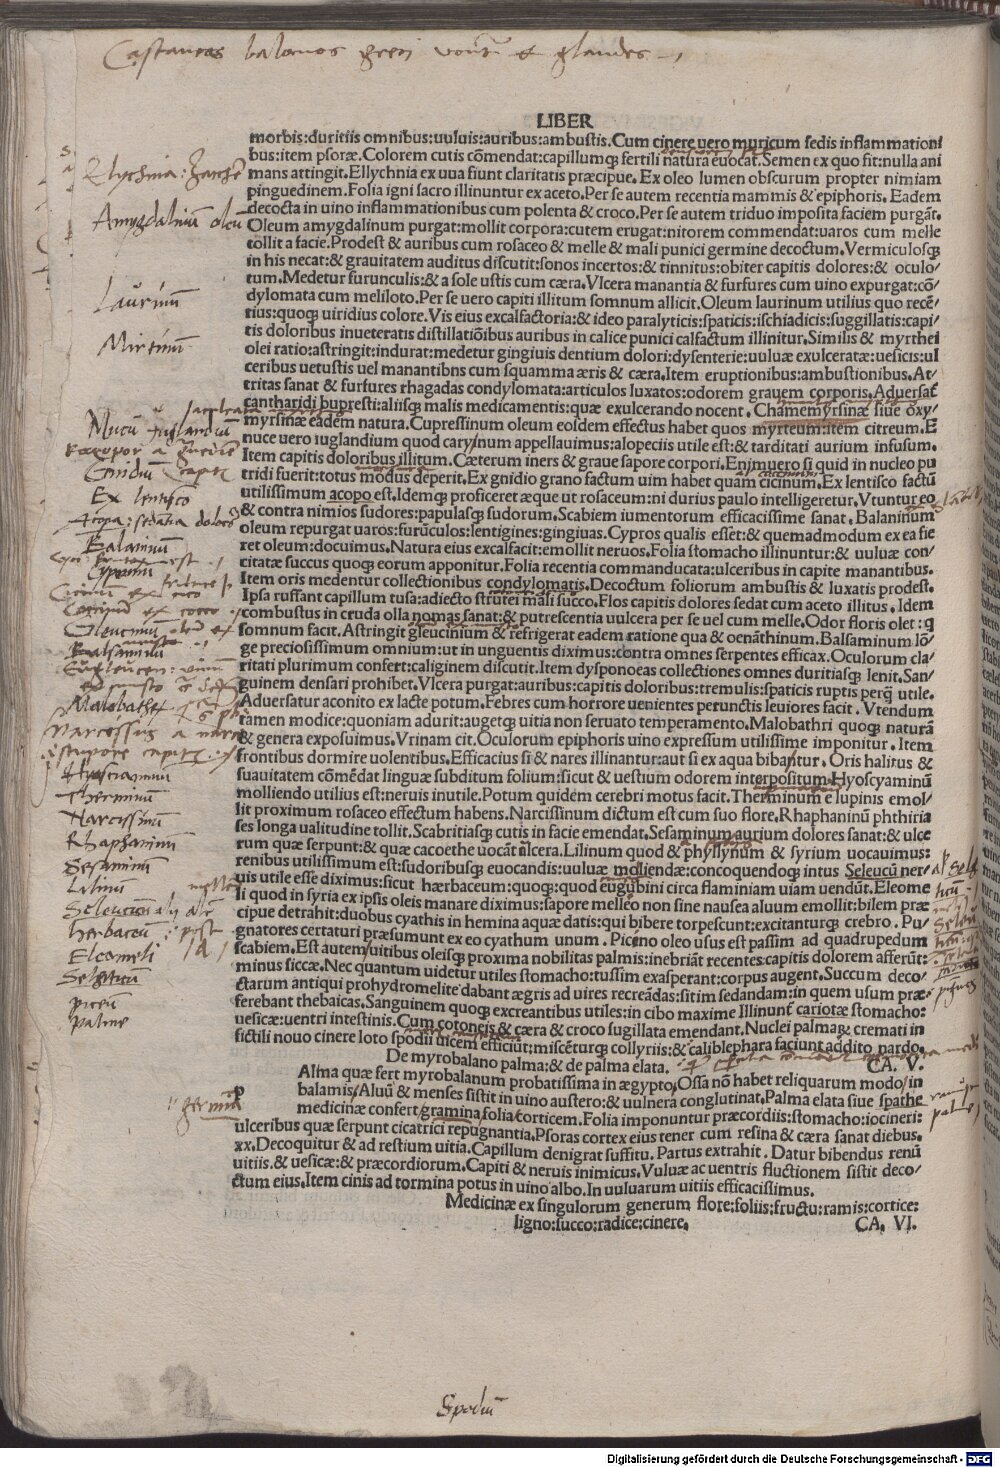 Castaneas balanos greci vocant & glandes
LIBER
morbis:duritiis omnibus:uuluis:auribus:ambustis.Cum cinere uero muricum sedis inflammationi
bus:item psoræ.Colorem cutis cõmendat:capillumq; fertili natura euocat.Semen ex quo fit:nulla ani
mans attingit.Ellychnia ex uua fiunt claritatis præcipue. Ex oleo lumen obscurum propter nimiam
pinguedinem. Folia igni sacro illinuntur ex aceto. Per se autem recentia mammis & epiphoris. Eadem
decocta in uino inflammationibus cum polenta & croco.Per se autem triduo imposita faciem purgãt.
Oleum amygdalinum purgat:mollit corpora:cutem erugat:nitorem commendat:uaros cum melle
tollit a facie.Prodest & auribus cum rosaceo & melle & mali punici germine decoctum. Vermiculosq;
in his necat:& grauitatem auditus discutit:sonos incertos:& tinnitus:obiter capitis dolores:& oculo/
tum.Medetur furunculis:& a sole ustis cum cæra.Vlcera manantia & furfures cum uino expurgat:cõ/
dylomata cum meliloto.Per se uero capiti illitum somnum allicit.Oleum laurinum utilius quo recē/
tius:quoq; uiridius colore. Vis eius excalfactoria:& ideo paralyticis:spaticis:ischiadicis:suggillatis:capi/
tis doloribus inueteratis distillatiõibus auribus in calice punici calfactum illinitur.Similis & myrthei
olei ratio:astringit:indurat:medetur gingiuis dentium dolori:dysenterie:uuluæ exulceratæ:uesicis:ul
ceribus uetustis uel manantibns cum squamma æris & cæra.Item eruptionibus:ambustionibus.At/
tritas sanat & furfures rhagadas condylomata:articulos luxatos:odorem grauem corporis.Aduersat̃
cantharidi bupresti:aliisq; malis medicamentis:quæ exulcerando nocent . Chamemyrsinæ siue oxy/
myrsinæ eadem natura. Cupressinum oleum eosdem effectus habet quos myrteum:item citreum. E
nuce uero iuglandium quod carynum appellauimus:alopeciis utile est:& tarditati aurium infusum.
Item capitis doloribus illitum. Cæterum iners & graue sapore corpori. Enimuero si quid in nucleo pu
tridi fuerit:totus modus deperit. Ex gnidio grano factum uim habet quam cicinum. Ex lentisco factũ
utilissimum acopo est.Idemq; proficeret æque ut rosaceum:ni durius paulo intelligeretur.Vtuntur eo
& contra nimios sudores:papulasq; sudorum. Scabiem iumentorum efficacissime sanat. Balaninum
oleum repurgat uaros:furũculos:lentigines:gingiuas. Cypros qualis esset:& quemadmodum ex ea fie
ret oleum:docuimus. Natura eius excalfacit:emollit neruos. Folia stomacho illinuntur:& uuluæ con/
citatæ succus quoq; eorum apponitur. Folia recentia commanducata:ulceribus in capite manantibus.
Item oris medentur collectionibus condylomatis.Decoctum foliorum ambustis & luxatis prodest.
Ipsa ruffant capillum tusa:adiecto strutei mali succo.Flos capitis dolores sedat cum aceto illitus . Idem
combustus in cruda olla nomas sanat:& putrescentia uulcera per se uel cum melle. Odor floris olet : q
somnum facit. Astringit gleucinium & refrigerat eadem ratione qua & oenãthinum. Balsaminum lõ/
ge preciosissimum omnium:ut in unguentis diximus:contra omnes serpentes efficax. Oculorum cla/
ritati plurimum confert:caliginem discutit. Item dysponoeas collectiones omnes duritiasq; lenit.San/
guinem densari prohibet. Vlcera purgat:auribus:capitis doloribus:tremulis:spaticis ruptis perq̃ utile.
Aduersatur aconito ex lacte potum. Febres cum horrore uenientes perunctis leuiores facit . Vtendum
tamen modice:quoniam adurit:augetq; uitia non seruato temperamento. Malobathri quoq; naturã
& genera exposuimus. Vrinam cit. Oculorum epiphoris uino expressum utilissime imponitur . Item
frontibus dormire uolentibus. Efficacius si & nares illinantur:aut si ex aqua bibatur . Oris halitus &
suauitatem cõmēdat linguæ subditum folium:sicut & uestium odorem interpositum.Hyoscyaminũ
molliendo utilius est:neruis inutile. Potum quidem cerebri motus facit. Therminum e lupinis emol/
lit proximum rosaceo effectum habens. Narcissinum dictum est cum suo flore. Rhaphaninũ phthiria
ses longa ualitudine tollit. Scabritiasq; cutis in facie emendat. Sesaminum aurium dolores sanat:& ulce
rum quæ serpunt:& quæ cacoethe uocãt ũlcera. Lilinum quod & phyllynum & syrium uocauimus:
renibus utilissimum est:sudoribusq; euocandis:uuluæ molliendæ:concoquendoq; intus Seleucũ ner
uis utile esse diximus:sicut hærbaceum:quoq;:quod eugubini circa flaminiam uiam uendũt. Eleome
li quod in syria ex ipsis oleis manare diximus:sapore melleo non sine nausea aluum emollit:bilem præ
cipue detrahit:duobus cyathis in hemina aquæ datis:qui bibere torpescunt:excitanturq; crebro . Pu/
gnatores certaturi præsumunt ex eo cyathum unum . Picino oleo usus est passim ad quadrupedum
scabiem. Est autem uitibus oleisq; proxima nobilitas palmis:inebriãt recentes:capitis dolorem afferũt:
minus siccæ. Nec quantum uidetur utiles stomacho:tussim exasperant:corpus augent. Succum deco/
ctarum antiqui prohydromelite dabant ægris ad uires recreãdas:sitim sedandam:in quem usum præ
ferebant thebaicas.Sanguinem quoq; excreantibus utiles:in cibo maxime Illinunt̃ cariotæ stomacho:
uesicæ:uentri intestinis. Cum cotoneis & cæra & croco sugillata emendant. Nuclei palmaȝ cremati in
fictili nouo cinere loto spodii uicem efficiut:miscẽturq; collyriis:& caliblephara faciunt addito nardo.
De myrobalano palma:& de palma elata. CA. V.
Alma quæ fert myrobalanum probatissima in ægypto,Ossa nõ habet reliquarum modo in
balamis,Aluũ & menses sistit in uino austero:& uulnera conglutinat. Palma elata siue spathe
medicinæ confert gramina folia corticem. Folia imponuntur præcordiis:stomacho:iocineri:
ulceribus quæ serpunt cicatrici repugnantia. Psoras cortex eius tener cum resina & cæra sanat diebus.
xx.Decoquitur & ad restium uitia. Capillum denigrat suffitu. Partus extrahit . Datur bibendus renũ
uitiis.& uesicæ:& præcordiorum. Capiti & neruis inimicus. Vuluæ ac uentris fluctionem sistit deco/
ctum eius.Item cinis ad tormina potus in uino albo. In uuluarum uitiis efficacissimus.
Medicinæ ex singulorum generum flore:foliis:fructu:ramis:cortice:
ligno:succo:radice:cinere. CA. VI.
Amygdalinũ oleũ
Laurinũ
Mirtinũ
Ex lentisco
Balaninũ
Hyosciaminũ
Therminũ
Narcissinũ
Rhaphaninũ
Sesaminũ
Lilinũ
herbaceũ
Eleomeli
piceũ
palme
p
Spodiũ
Digitalisierung gefördert durch die Deutsche Forschungsgemeinschaft - DFG